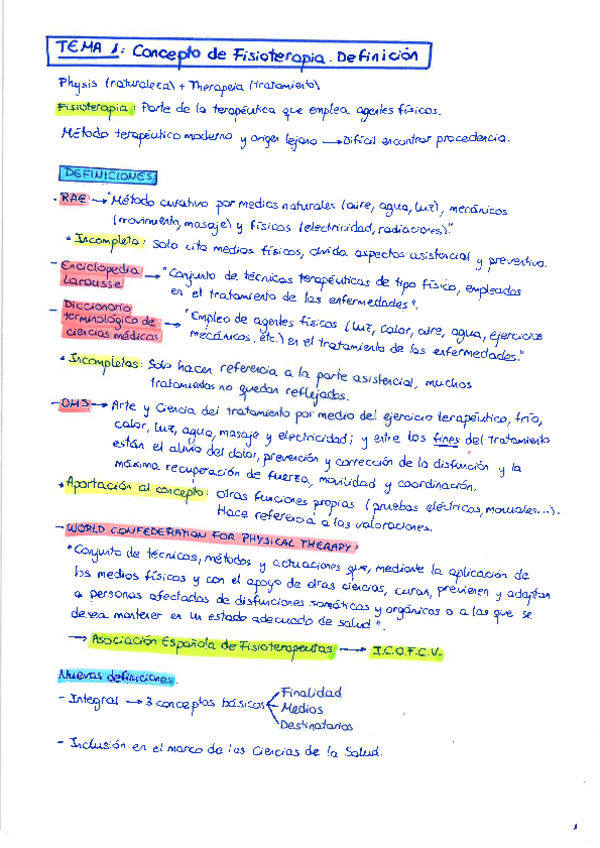 TEMA 1: Concepto de Fisioterapia. Definición
Physis (naturaleza) + Therapeia (tratamiento)
Fisioterapia: Parte de la terapéutica que emplea agentes físicos.
Método terapéutico moderno y origen lejano → Difícil encontrar procedencia.
DEFINICIONES
- RAE → "Método curativo por medios naturales (aire, agua, luz), mecánicos
(movimiento, masaje) y físicos (electricidad, radiaciones)."
* Incompleta: Solo cita medios físicos, olvida aspectos asistencial y preventivo.
- Enciclopedia Larousse → "Conjunto de técnicas terapéuticas de tipo físico, empleados
en el tratamiento de las enfermedades".
- Diccionario terminológico de ciencias médicas → "Empleo de agentes físicos (luz, calor, aire, agua, ejercicios
mecánicos, etc.) en el tratamiento de las enfermedades."
* Incompletas: Solo hacen referencia a la parte asistencial, muchos
tratamientos no quedan reflejados.
- OMS → Arte y Ciencia del tratamiento por medio del ejercicio terapéutico, frío,
calor, luz, agua, masaje y electricidad; y entre los fines del tratamiento
están el alivio del dolor, prevención y corrección de la disfunción y la
máxima recuperación de fuerza, movilidad y coordinación.
* Aportación al concepto: Otras funciones propias (pruebas eléctricas, manuales...).
Hace referencia a las valoraciones.
- WORLD CONFEDERATION FOR PHYSICAL THERAPY:
"Conjunto de técnicas, métodos y actuaciones que, mediante la aplicación de
los medios físicos y con el apoyo de otras ciencias, curan, previenen y adaptan
a personas afectadas de disfunciones somáticas y orgánicas o a las que se
desea mantener en un estado adecuado de salud".
→ Asociación Española de Fisioterapeutas → I.C.O.F.C.V.
Nuevas definiciones.
- Integral → 3 conceptos básicos
Finalidad
Medios
Destinatarios
- Inclusión en el marco de las Ciencias de la Salud.
1